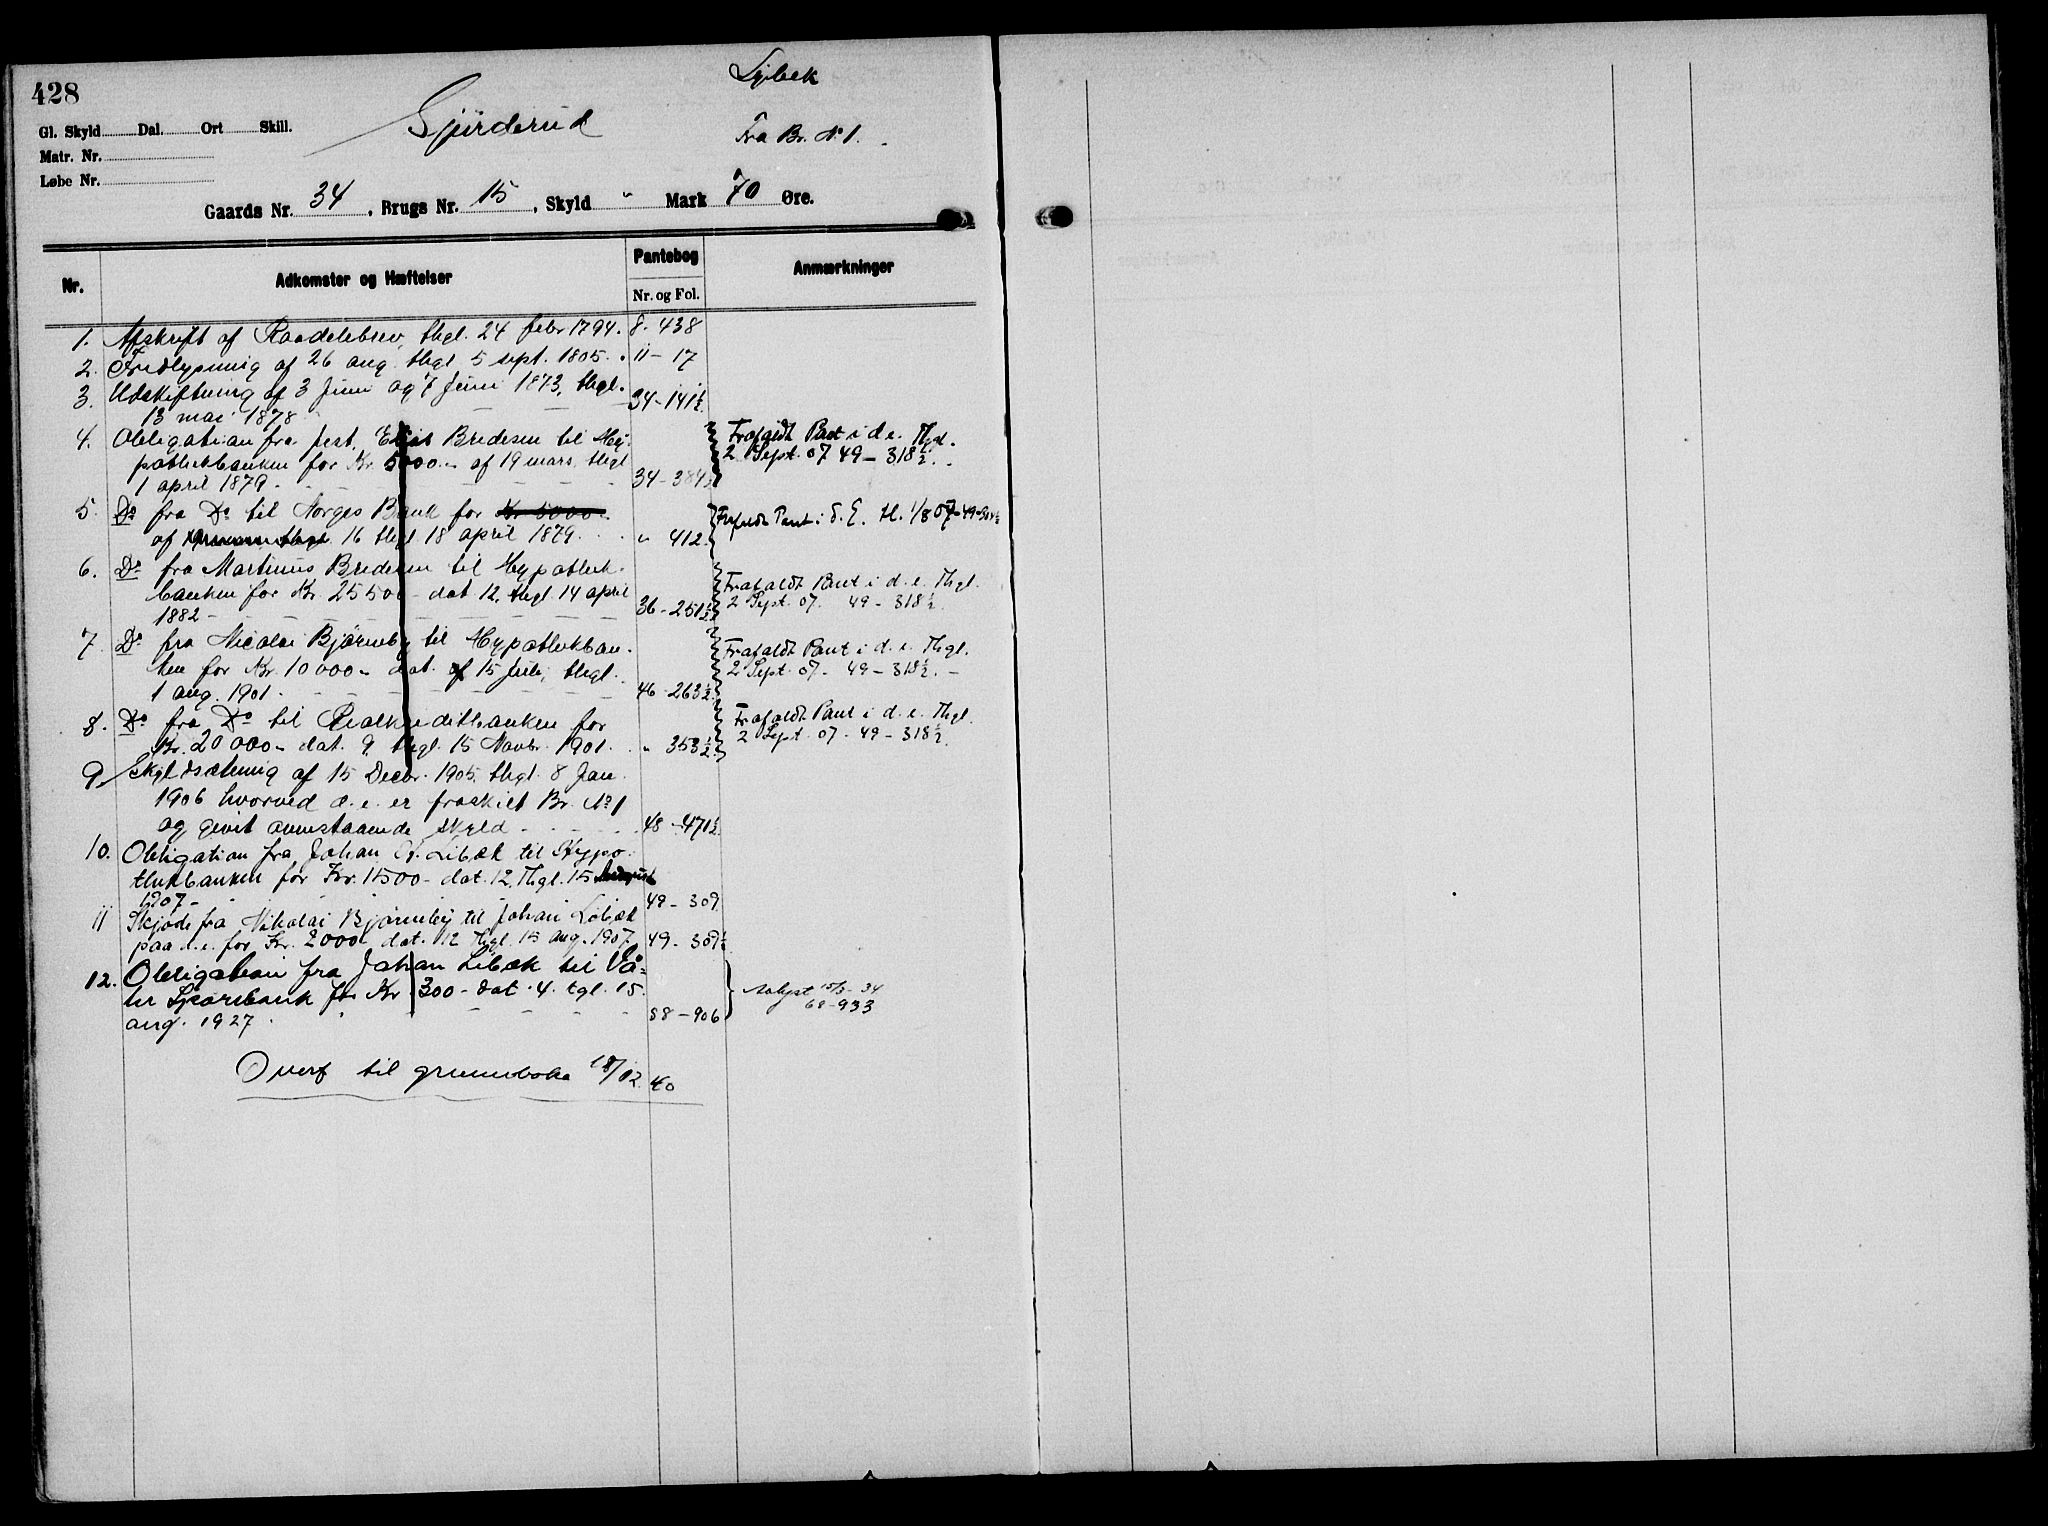 428
Lybek
Gl. Skyld Dal. Ort Skill.
Gjürderud
Fra Br. No 1.
Matr. Nr.
Løbe Nr.
Gaards Nr. 34, Brugs Nr. 15, Skyld " Mark 70 Øre.
Nr. Adkomster og Hæftelser Pantebog Nr. og Fol. Anmærkninger
1. Afskrift af Raadelebrev, thgl. 24 febr 1794. 8 - 438
2. Fredlysning af 26 aug. thgl 5 sept. 1805. 11 - 17
3. Udskiftning af 3 Juni og 7 Juni 1873, thgl.
13 mai 1878 34 - 141½
4. Obligation fra fest. Elias Bredesen til Hy- Frafaldt Pant i d. e. Thgl.
pothekbanken for Kr. 5000 - af 19 mars, thgl 2 Sept. 07 49 - 318½.
1 april 1879. 34 - 384½
5. Do fra Do til Norges Bank for Kr 5000 Frafaldt Pant i d. E. tl. 1/8 07 - 49 -
af 16 thgl 18 april 1879. " 412.
6. Do fra Martinus Bredesen til Hypothek- Frafaldt Pant i d. e. Thgl.
banken for Kr. 25500 - dat 12, thgl. 14 april 2 Sept. 07. 49 - 318½.
1882 - 36 - 251½
7. Do fra Nicolai Bjørneby til Hypothekban- Frafaldt Pant i d. e. Thgl.
ken for Kr. 10000 - dat. af 15 Juli, thgl. 2 Sept. 07 - 49 - 318½. -
1 aug. 1901. 46 - 263½.
8. Do fra Do til Realkreditbanken for Frafaldt Pant i d. e. Thgl.
Kr. 20000 - dat. 9, thgl. 15 Novbr. 1901. " 353½ 2 Sept. 07 - 49 - 318½.
9. Skyldsætning af 15 Decbr. 1905, thgl. 8 Jan.
1906 hvorved d. e. er fraskilt Br. No 1
og givet ovenstaaende skyld 48 - 471½
10. Obligation fra Johan Libæk til Hypo-
thekbanken for Kr. 1500 - dat. 12, Thgl. 15 August
1907 - 49 - 309.
11 Skjøde fra Nikolai Bjørneby til Johan Libæk
paa d. e. for Kr. 2000 - dat. 12 Thgl. 15 aug. 1907 49 - 309½
12. Obligation fra Johan Libæk til Vå-
ler Sparebank for Kr 300 - dat. 4. tgl. 15. Avlyst 15/3 - 34
aug. 1927. 58 - 906 62 - 933
Overf til grunnboka 18/12. 40